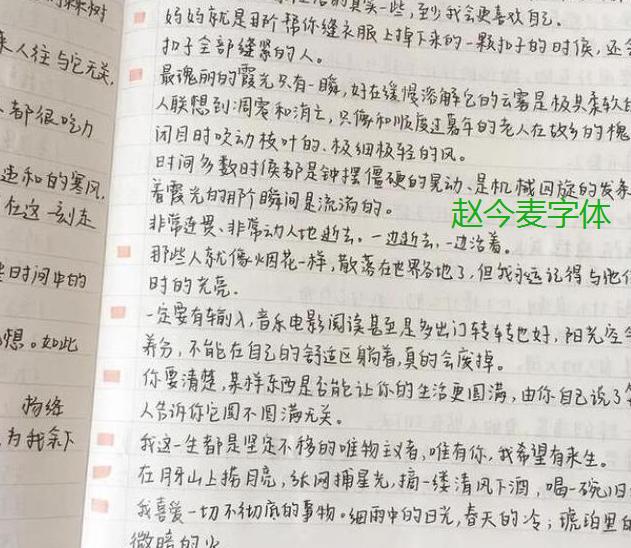 棵树
来人往与它无关,
都很吃力
违和的寒风,
在这一刻走
些时间中的
想。如此
拐络
为我余下
活的真实一些,至少我会更喜欢自己。
妈妈就是那个帮你缝衣服上掉下来的一颗扣子的时候,还会
扣子全部缝紧的人。
最瑰丽的霞光只有一瞬,好在缓慢溶解它的云雾是极其柔软的
人联想到凋零和消亡,只像和顺度过暮年的老人在故乡的槐
闭目时吹动枝叶的、极细极轻的风。
时间多数时候都是钟摆僵硬的晃动、是机械回旋的发条
着霞光的那个瞬间是流淌的。
赵今麦字体
非常迷畏、非常动人地逝去。一边逝去,一边活着。
那些人就像烟花一样,散落在世界各地了,但我永远记得与他们
时的光亮.
一定要有输入,音乐电影阅读甚至是多出门转转也好,阳光空气
养分,不能在自己的舒适区躺着,真的会废掉。
你要清楚,某样东西是否能让你的生活更圆满,由你自己说了算
人告诉你它圆不圆满无关。
我这一生都是坚定不移的唯物主义者,唯有你,我希望有来生。
在月牙山上捞月亮,织网捕星光,摘一缕清风下酒,喝一碗旧
我喜爱一切不彻底的事物。细雨中的日光,春天的冷;琥珀里的
微暗的火